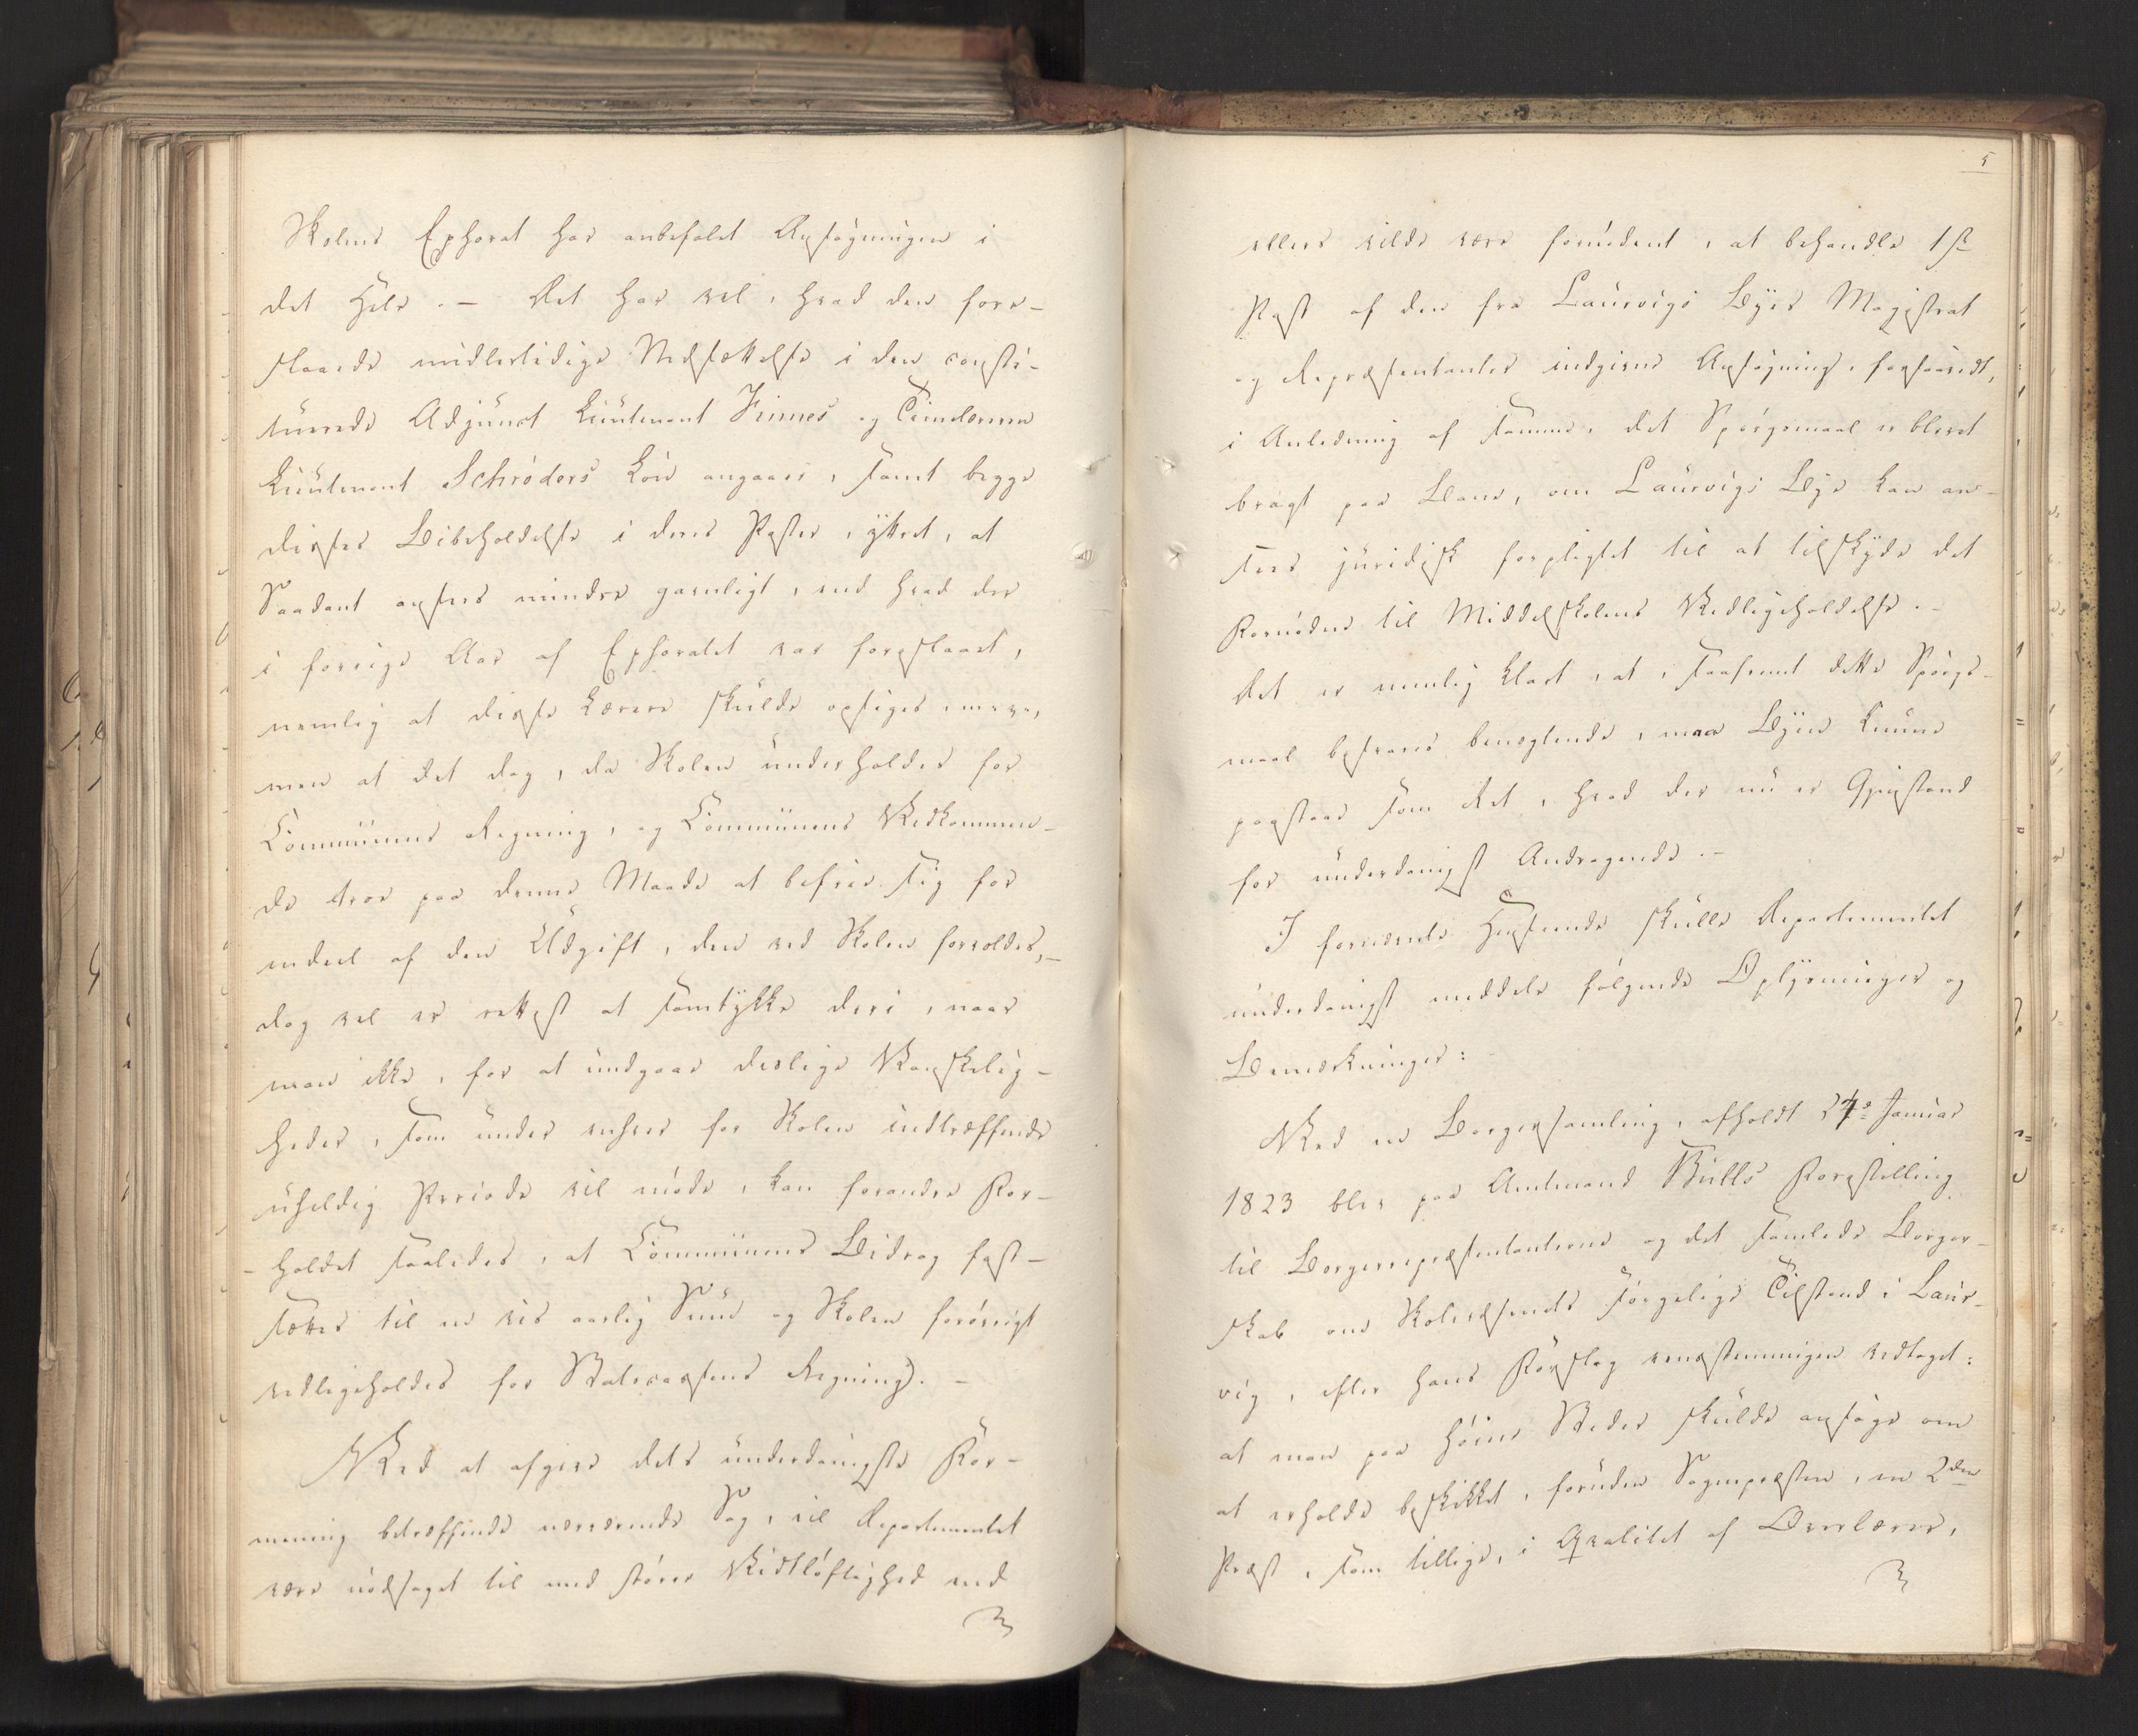 Skolens Ephorat har anbefalet Ansøgningen i
det Hele. – Det har vel, hvad den fore-
slaaede midlertidige Nedsættelse i den consti-
tuerede Adjunct Lieutenant Finnes og Timelærer
Lieutenant Schrøders Løn angaaer, samt begge
disses Beibeholdelse i deres Poster, yttret, at
Saadant ansees mindre gavnligt, end hvad der
i forrige Aar af Ephoratet var foreslaaet,
nemlig at disse Lærere skulde opsiges, m: v:,
men at det dog, da Skolen underholdes for
Communens Regning, og Communens Vedkommen-
de troe paa denne Maade at befrie sig for
endeel af den Udgift, den ved Skolen forvoldes, –
dog vel er rettest at samtykke deri, naar
man ikke, for at undgaae deslige Vanskelig-
heder, som under enhver for Skolen indtræffende
uheldig Periode vil møde, kan forandre For-
holdet saaledes, at Communens Bidrag fast-
sættes til en vis aarlig Sum og Skolen forøvrigt
vedligeholdes for Statscassens Regning. –
Ved at afgive dets underdanigste For-
mening betræffende nærværende Sag, vil Departementet
være nødsaget til med større Vidtløftighed end
5
ellers vilde være fornødent, at behandle 1ste
Post af den fra Laurvigs Byes Magistrat
og Repræsentanter indgivne Ansøgning, forsaavidt,
i Anledning af samme, det Spørgsmaal er blevet
bragt paa Bane, om Laurvigs Bye kan an-
sees juridisk forpligtet til at tilskyde det
Fornødne til Middelskolens Vedligeholdelse. –
Det er nemlig klart, at, saafremt dette Spørgs-
maal besvares benægtende, maa Byen kunne
paastaae som Ret, hvad der nu er Gjenstand
for underdanigst Andragende. –
I fornævnte Henseende skulle Departementet
underdanigst meddele følgende Oplysninger og
Bemærkninger: –
Ved en Borgersamling, afholdt 24de Januar
1823 blev paa Amtmand Bulls Forestilling
til Borgerrepræsentanterne og det samlede Borger-
skab om Skolevæsenets sørgelige Tilstand i Laur-
vig, efter hans Forslag eenstemmigen vedtaget:
at man paa høiere Steder skulde ansøge om
at erholde beskikket, foruden Sognepræsten, en 2den
Præst, som tillige, i Qvalitet af Overlærer,